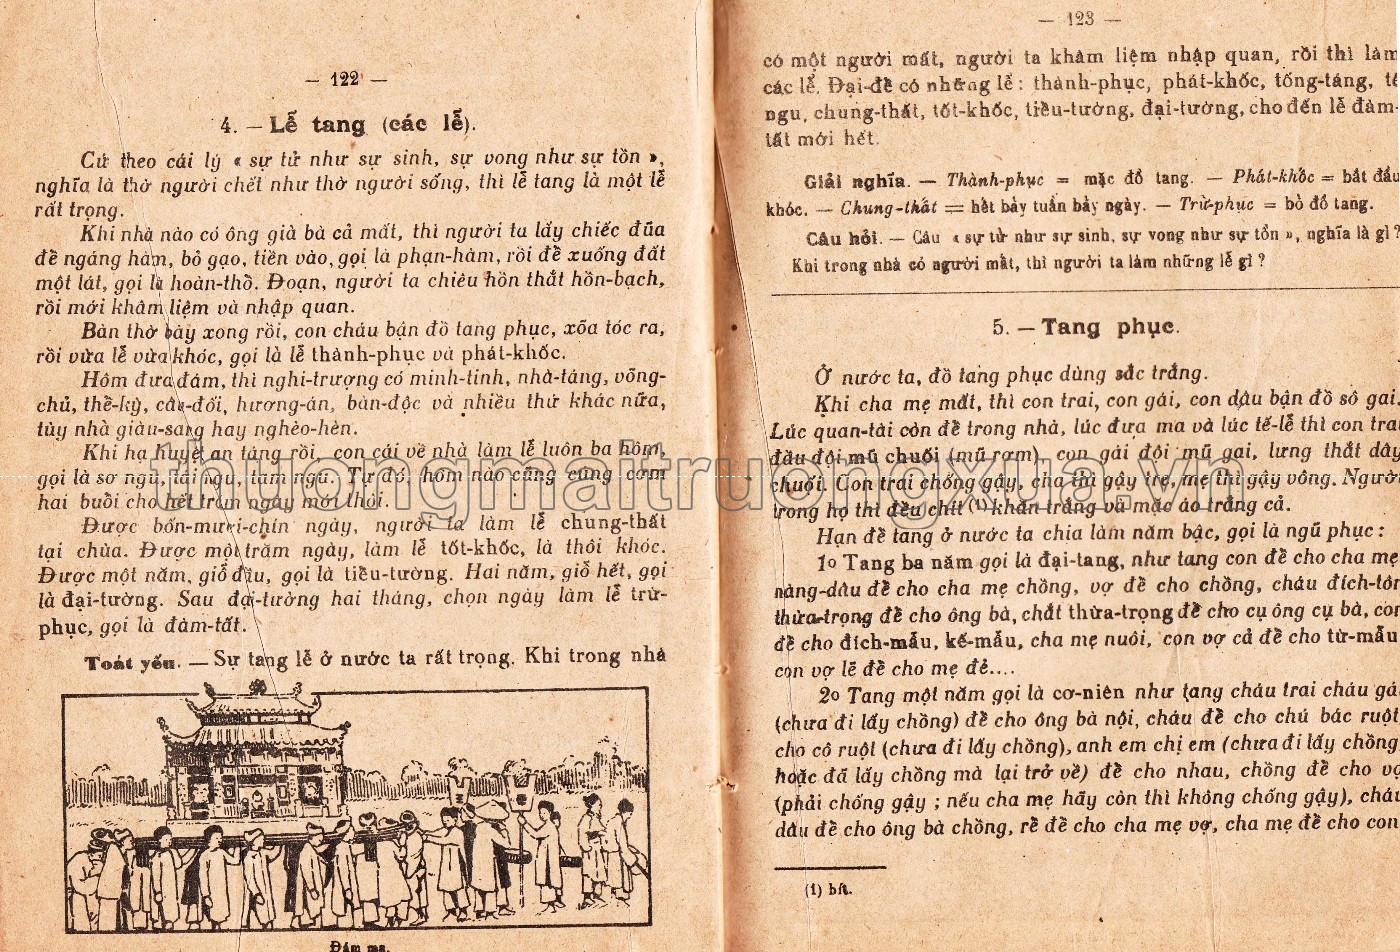 — 122 —
4. — Lễ tang (các lễ).
Cứ theo cái lý « sự tử như sự sinh, sự vong như sự tồn »,
nghĩa là thờ người chết như thờ người sống, thì lễ tang là một lễ
rất trọng.
Khi nhà nào có ông già bà cả mất, thì người ta lấy chiếc đũa
để ngáng hàm, bỏ gạo, tiền vào, gọi là phạn-hàm, rồi để xuống đất
một lát, gọi là hoàn-thổ. Đoạn, người ta chiêu hồn thắt hồn-bạch,
rồi mới khâm liệm và nhập quan.
Bàn thờ bày xong rồi, con cháu bận đồ tang phục, xõa tóc ra,
rồi vừa lễ vừa khóc, gọi là lễ thành-phục và phát-khốc.
Hôm đưa đám, thì nghi-trượng có minh-tinh, nhà-táng, võng-
chủ, thể-kỳ, câu-đối, hương-án, bàn-độc và nhiều thứ khác nữa,
tùy nhà giàu-sang hay nghèo-hèn.
Khi hạ huyệt an táng rồi, con cái về nhà làm lễ luôn ba hôm,
gọi là sơ ngu, tái ngu, tam ngu. Tự đó, hôm nào cũng cúng cơm
hai buổi cho hết trăm ngày mới thôi.
Được bốn-mươi-chín ngày, người ta làm lễ chung-thất
tại chùa. Được một trăm ngày, làm lễ tốt-khốc, là thôi khóc.
Được một năm, giỗ đầu, gọi là tiểu-tường. Hai năm, giỗ hết, gọi
là đại-tường. Sau đại-tường hai tháng, chọn ngày làm lễ trừ-
phục, gọi là đàm-tất.
Toát yếu. — Sự tang lễ ở nước ta rất trọng. Khi trong nhà
Đám ma.
— 123 —
có một người mất, người ta khâm liệm nhập quan, rồi thì làm
các lễ. Đại-đề có những lễ : thành-phục, phát-khốc, tống-táng, tế
ngu, chung-thất, tốt-khốc, tiểu-tường, đại-tường, cho đến lễ đàm-
tất mới hết.
Giải nghĩa. — Thành-phục = mặc đồ tang. — Phát-khốc = bắt đầu
khóc. — Chung-thất = hết bảy tuần bảy ngày. — Trừ-phục = bỏ đồ tang.
Câu hỏi. — Câu « sự tử như sự sinh, sự vong như sự tồn », nghĩa là gì ?
Khi trong nhà có người mất, thì người ta làm những lễ gì ?
5. — Tang phục.
Ở nước ta, đồ tang phục dùng sắc trắng.
Khi cha mẹ mất, thì con trai, con gái, con dâu bận đồ sô gai.
Lúc quan-tài còn để trong nhà, lúc đưa ma và lúc tế-lễ thì con trai
đầu đội mũ chuối (mũ rơm), con gái đội mũ gai, lưng thắt dây
chuối. Con trai chống gậy, cha thì gậy tre, mẹ thì gậy vông. Người
trong họ thì đều chít (1) khăn trắng và mặc áo trắng cả.
Hạn để tang ở nước ta chia làm năm bậc, gọi là ngũ phục :
1o Tang ba năm gọi là đại-tang, như tang con để cho cha mẹ,
nàng-dâu để cho cha mẹ chồng, vợ để cho chồng, cháu đích-tôn
thừa-trọng để cho ông bà, chắt thừa-trọng để cho cụ ông cụ bà, con
để cho đích-mẫu, kế-mẫu, cha mẹ nuôi, con vợ cả để cho từ-mẫu
con vợ lẽ để cho mẹ đẻ....
2o Tang một năm gọi là cơ-niên như tang cháu trai cháu gái
(chưa đi lấy chồng) để cho ông bà nội, cháu để cho chú bác ruột,
cho cô ruột (chưa đi lấy chồng), anh em chị em (chưa đi lấy chồng
hoặc đã lấy chồng mà lại trở về) để cho nhau, chồng để cho vợ
(phải chống gậy ; nếu cha mẹ hãy còn thì không chống gậy), cháu
dâu để cho ông bà chồng, rể để cho cha mẹ vợ, cha mẹ để cho con
(1) bít.
thuongmaitruongxua.vn